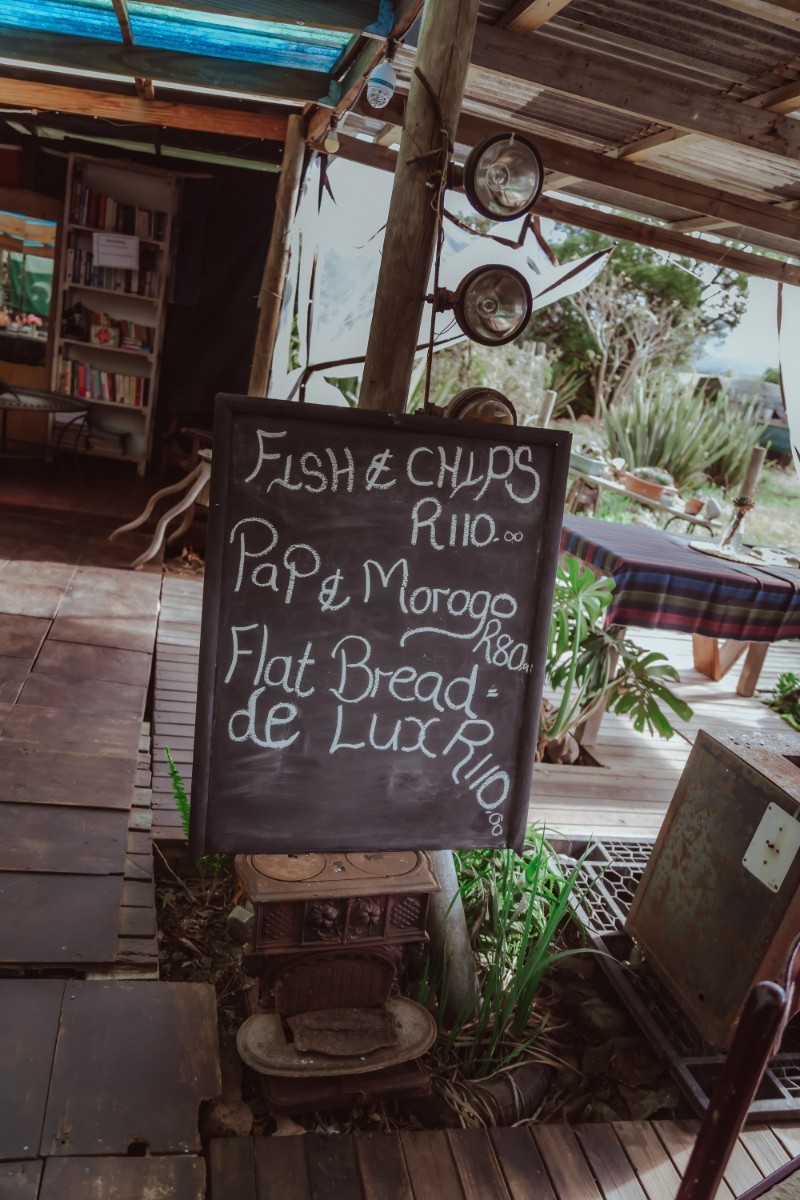 FISH & CHIPS
R110.00
PaP & Morogo
R80.00
Flat Bread-
de Lux R110.00